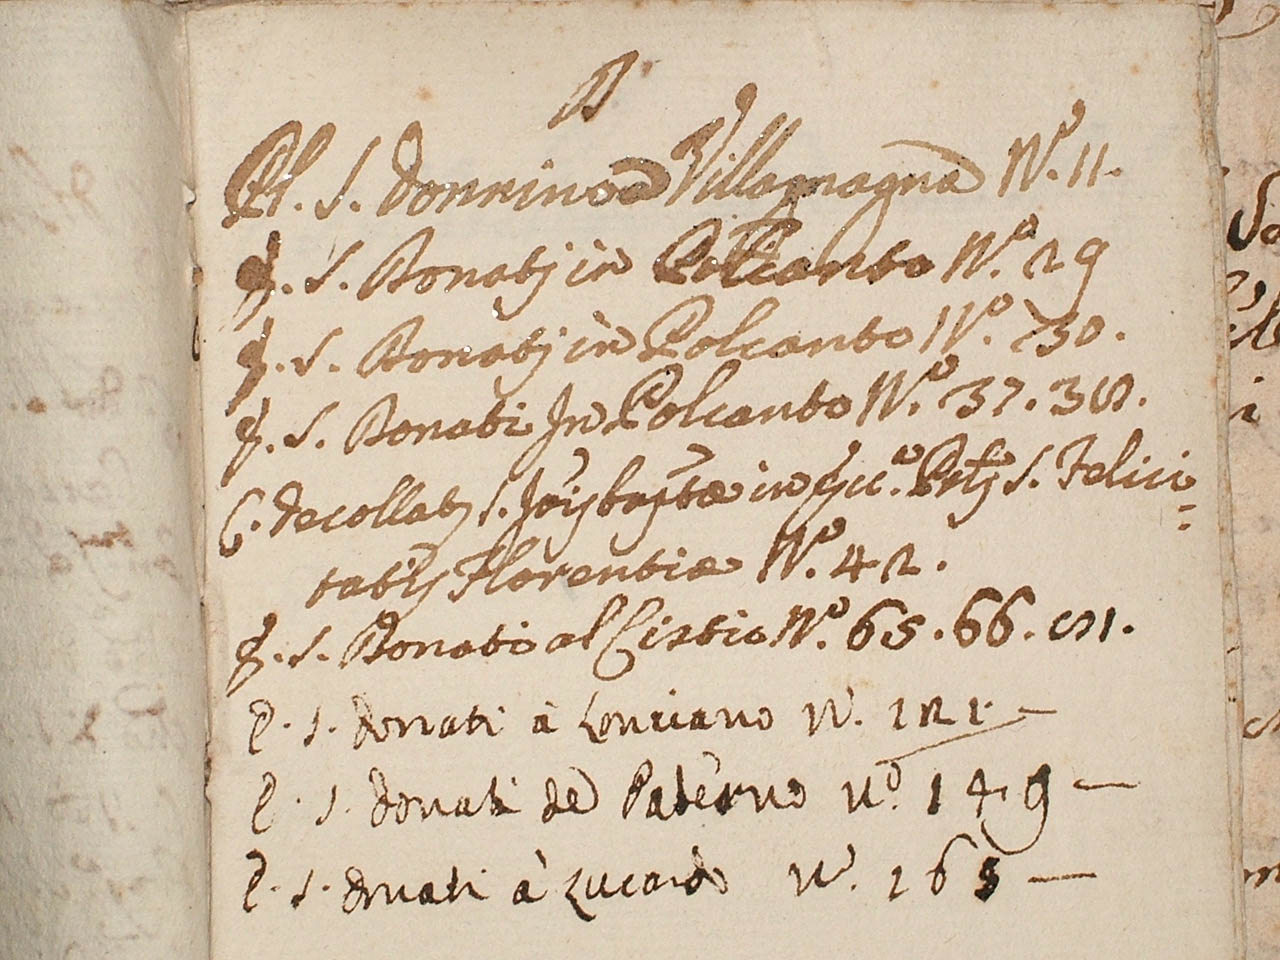 D
Pl. S. Donnino a Villamagna N.o 11.
P. S. Donatj in Polcanto N.o 29
P. S. Donatj in Polcanto N.o 30.
P. S. Donati In Polcanto N.o 37. 38.
C. Decollatj S. Jois baptae in Ecc.a S. Felici=
tatis Florentiae N.o 42.
P. S. Donato al Cistio N.o 65. 66. 81.
P. S. Donati à Lonciano N. 121. —
P. S. Donati de Paterno N.o 149 —
P. S. Donati à Lucardo N. 165 —